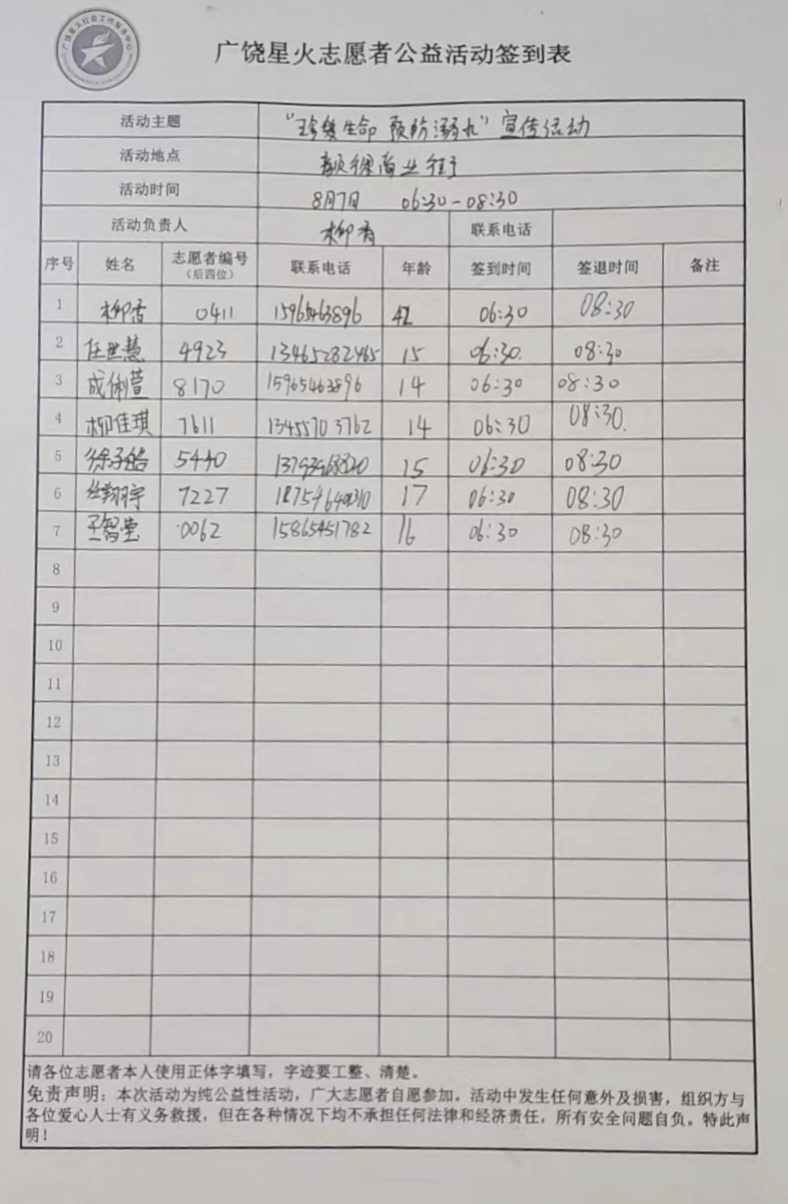 广饶星火社会工作服务中心
广饶星火志愿者公益活动签到表
活动主题 "珍爱生命 预防溺水"宣传活动
活动地点 商业街
活动时间 8月7日 06:30-08:30
活动负责人 柳香 联系电话
序号 姓名 志愿者编号(后四位) 联系电话 年龄 签到时间 签退时间 备注
1 柳香 0411 15965463896 42 06:30 08:30
2 任世慧 4923 13465282465 15 06:30 08:30
3 成俐萱 8170 15965463896 14 06:30 08:30
4 柳佳琪 7611 13455703762 14 06:30 08:30.
5 5440 15 06:30 08:30
6 7227 17 06:30 08:30
7 0062 15865451782 16 06:30 08:30
8
9
10
11
12
13
14
15
16
17
18
19
20
请各位志愿者本人使用正体字填写，字迹要工整、清楚。
免责声明：本次活动为纯公益性活动，广大志愿者自愿参加。活动中发生任何意外及损害，组织方与
各位爱心人士有义务救援，但在各种情况下均不承担任何法律和经济责任，所有安全问题自负。特此声
明！